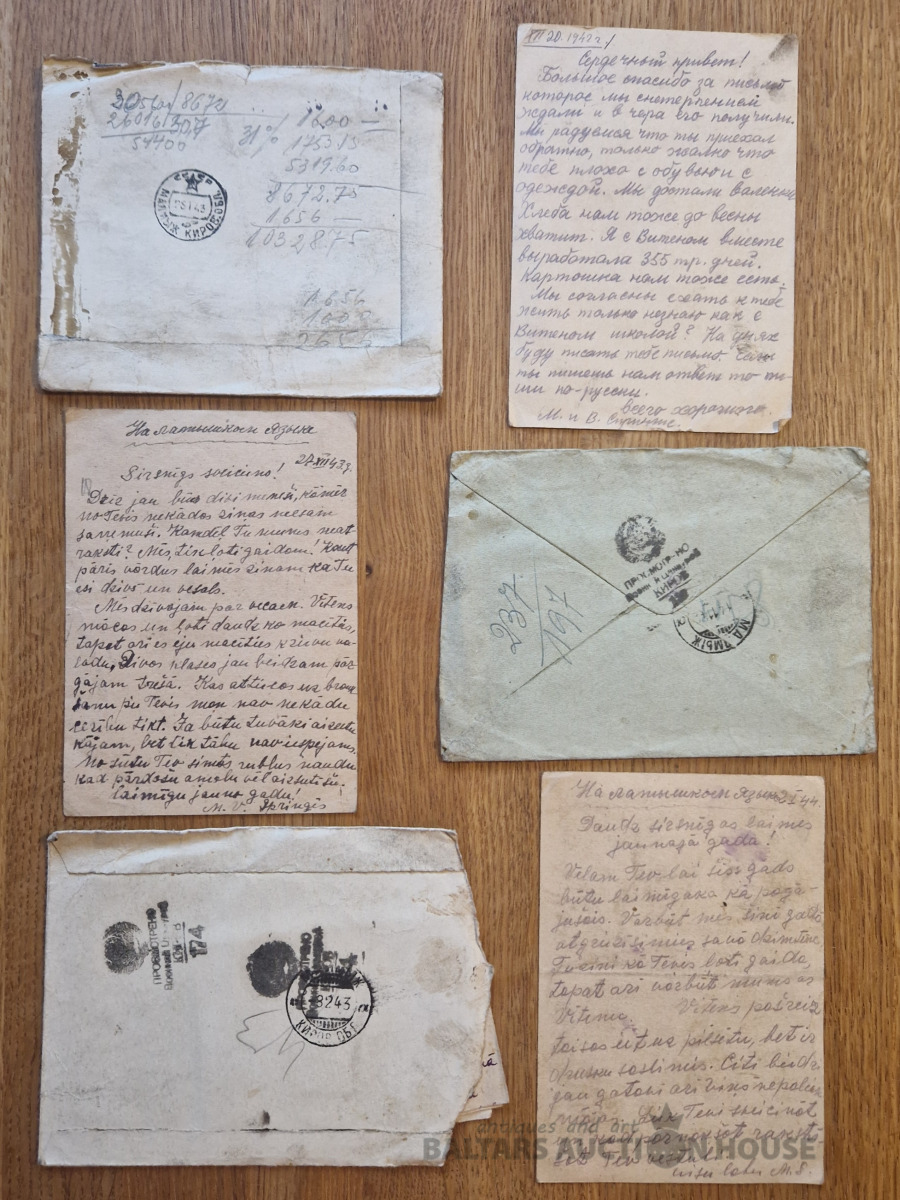 3056 от 8672
26016 307
51400
31%
1800 —
1753.15
5319.60
8672.75
1656 —
10328.75
1656
1000
2656
СССР
МАЛМЫЖ КИРОВ.ОБЛ.
28 1 43
XII 20. 1942 г/
Сердечный привет!
Большое спасибо за письмо
которое мы снетерпением
ждали и в чера его получили.
Мы радуемся что ты приехал
обратно, только жално что
тебе плохо с обувью и с
одеждой. Мы достали валенки
Хлеба нам тоже до весны
хватит. Я с Витеном вместе
выработала 355 тр. дней.
Картошка нам тоже есть.
Мы согласны ехать к тебе
жить только незнаю как с
Витеном школой? На днях
буду писать тебе письмо. Если
ты пишешь нам ответ то пи-
ши по-русски.
всего хорошего.
М. и В. Спрингис.
На латышком Языке
27 XII 43 g.
Sirsnīgs sveiciens!
Drīz jau būs divi mēneši, kāmēr
no Tevis nekādas ziņas neesam
saņēmuši. Kandēl Tu mums neat-
raksti? Mēs tik ļoti gaidam! Kaut
pāris vārdus laimēs zinam ka Tu
esi dzīvs un vesels.
Mēs dzīvojam par vecam. Vitens
mācas un ļoti daudz ko mācītās,
tapat arī es eju macīties krievu va-
lodu, Divas klases jau beidzam pār-
gājam trešā. Kas attiecas uz brauk
šanu pie Tevis man nav nekādu
cerību tikt. Ja būtu tuvāki aizietu
kājām, bet tik tālu nav iespējams.
No sūtu Tev simts rubļus naudu
kad pārdošu amolu vēl aizsutīšu.
Laimīgu jauno gadu!
M. V. Spriņģis
237
197
ПРОСМОТРЕНО
Военной Цензурой
КИРОВ
МАЛМЫЖ
ПРОСМОТРЕНО
Военной Цензурой
174
ПРОСМОТРЕНО
8 2 43
КИРОВ ОБЛ
На латышком Языке 2 I 44
Daudz sirsnīgas laimes
jaunajā gadā!
Vēlam Tev lai šis gads
būtu laimīgaks kā pagā-
jušais. Varbūt mēs šinī gadā
atgriezīsimies savā dzimtenē
Tu zini kā Tevis ļoti gaida,
tapat arī varbūt mums as
Vitens. Vitens pašreiz
taisas iet uz pilsētu, bet ir
drusku saslimis. Citi biedri
jau gatavi arī viņš nepaliek
mājās. Liek Tevi sveicināt
visu labu M. S.
antiques and art
BALTARS AUCTION HOUSE